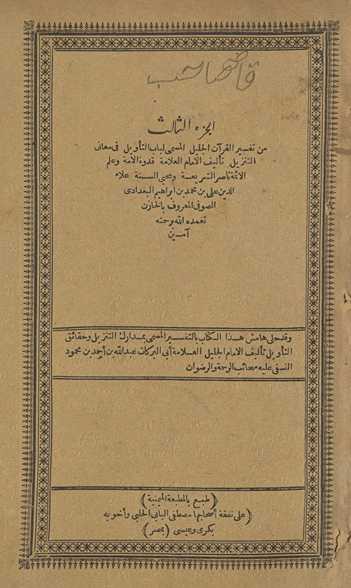 الجزء الثالث
من تفسير القرآن الجليل المسمى لباب التأويل في معاني
التنزيل تأليف الامام العلامة قدوة الأمة وعلم
الائمة ناصر الشريعة ومحيي السنة علاء
الدين علي بن محمد بن ابراهيم البغدادي
الصوفي المعروف بالخازن
تغمده الله برحمته
آمين
وقد حلى هامش هذا الكتاب بالتفسير المسمى بمدارك التنزيل وحقائق
التأويل تأليف الامام الجليل العلامة أبي البركات عبدالله بن أحمد بن محمود
النسفي عليه سحائب الرحمة والرضوان
(طبع بالمطبعة الميمنية)
(على نفقة أصحابها مصطفى البابي الحلبي وأخويه
بكري وعيسى) (بمصر)